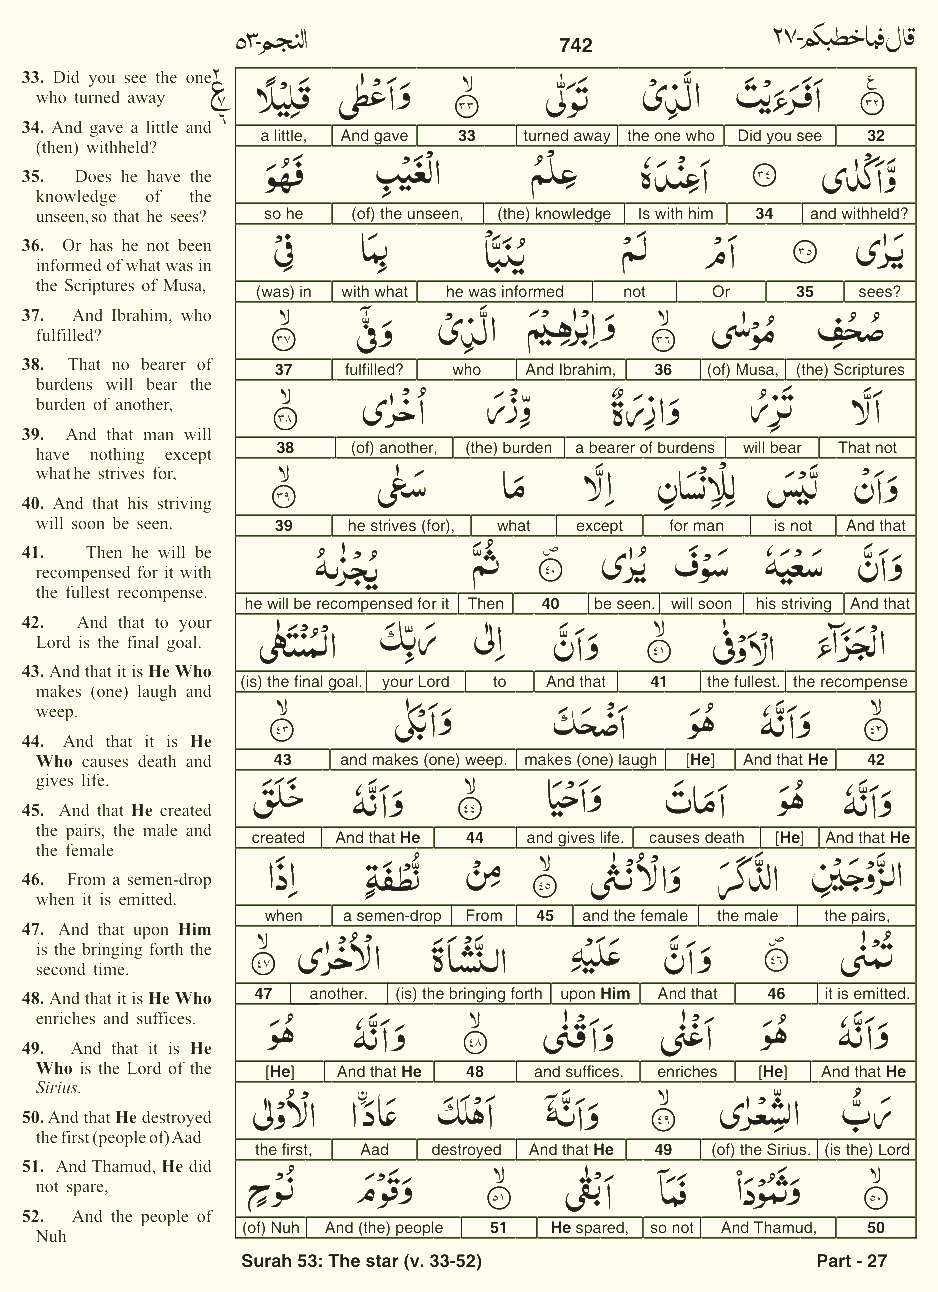 النجم-۵۳ 742 قال فماخطبكم-۲۷
33. Did you see the one
who turned away
34. And gave a little and
(then) withheld?
35. Does he have the
knowledge of the
unseen, so that he sees?
36. Or has he not been
informed of what was in
the Scriptures of Musa,
37. And Ibrahim, who
fulfilled?
38. That no bearer of
burdens will bear the
burden of another,
39. And that man will
have nothing except
what he strives for,
40. And that his striving
will soon be seen.
41. Then he will be
recompensed for it with
the fullest recompense.
42. And that to your
Lord is the final goal.
43. And that it is He Who
makes (one) laugh and
weep.
44. And that it is He
Who causes death and
gives life.
45. And that He created
the pairs, the male and
the female
46. From a semen-drop
when it is emitted.
47. And that upon Him
is the bringing forth the
second time.
48. And that it is He Who
enriches and suffices.
49. And that it is He
Who is the Lord of the
Sirius.
50. And that He destroyed
the first (people of) Aad
51. And Thamud, He did
not spare,
52. And the people of
Nuh
٣٢ اَفَرَءَيْتَ الَّذِىْ تَوَلّٰى ٣٣ وَاَعْطٰى قَلِيْلًا
32 Did you see the one who turned away 33 And gave a little,
وَّاَكْدٰى ٣٤ اَعِنْدَهٗ عِلْمُ الْغَيْبِ فَهُوَ
and withheld? 34 Is with him (the) knowledge (of) the unseen, so he
يَرٰى ٣٥ اَمْ لَمْ يُنَبَّاْ بِمَا فِىْ
sees? 35 Or not he was informed with what (was) in
صُحُفِ مُوْسٰى ٣٦ وَاِبْرٰهِيْمَ الَّذِىْ وَفّٰٓى ٣٧
(the) Scriptures (of) Musa, 36 And Ibrahim, who fulfilled? 37
اَلَّا تَزِرُ وَازِرَةٌ وِّزْرَ اُخْرٰى ٣٨
That not will bear a bearer of burdens (the) burden (of) another, 38
وَاَنْ لَّيْسَ لِلْاِنْسَانِ اِلَّا مَا سَعٰى ٣٩
And that is not for man except what he strives (for), 39
وَاَنَّ سَعْيَهٗ سَوْفَ يُرٰى ٤٠ ثُمَّ يُجْزٰىهُ
And that his striving will soon be seen. 40 Then he will be recompensed for it
الْجَزَآءَ الْاَوْفٰى ٤١ وَاَنَّ اِلٰى رَبِّكَ الْمُنْتَهٰى
the recompense the fullest. 41 And that to your Lord (is) the final goal.
٤٢ وَاَنَّهٗ هُوَ اَضْحَكَ وَاَبْكٰى ٤٣
42 And that He [He] makes (one) laugh and makes (one) weep. 43
وَاَنَّهٗ هُوَ اَمَاتَ وَاَحْيَا ٤٤ وَاَنَّهٗ خَلَقَ
And that He [He] causes death and gives life. 44 And that He created
الزَّوْجَيْنِ الذَّكَرَ وَالْاُنْثٰى ٤٥ مِنْ نُّطْفَةٍ اِذَا
the pairs, the male and the female 45 From a semen-drop when
تُمْنٰى ٤٦ وَاَنَّ عَلَيْهِ النَّشْاَةَ الْاُخْرٰى ٤٧
it is emitted. 46 And that upon Him (is) the bringing forth another. 47
وَاَنَّهٗ هُوَ اَغْنٰى وَاَقْنٰى ٤٨ وَاَنَّهٗ هُوَ
And that He [He] enriches and suffices. 48 And that He [He]
رَبُّ الشِّعْرٰى ٤٩ وَاَنَّهٗٓ اَهْلَكَ عَادَا الْاُوْلٰى
(is the) Lord (of) the Sirius. 49 And that He destroyed Aad the first,
٥٠ وَثَمُوْدَا۟ فَمَآ اَبْقٰى ٥١ وَقَوْمَ نُوْحٍ
50 And Thamud, so not He spared, 51 And (the) people (of) Nuh
Surah 53: The star (v. 33-52) Part - 27